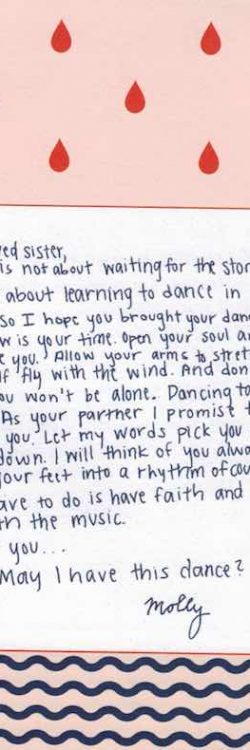 sister,
is not about waiting for the
about learning to dance in
So I hope you brought your
is your time. Open your soul
you. Allow your arms to
fly with the wind. And
you won't be alone. Dancing
As your partner I promise
you. Let my words pick you
down. I will think of you
your feet into a rhythm of
have to do is have faith and
the music.
you...
May I have this dance?
Molly